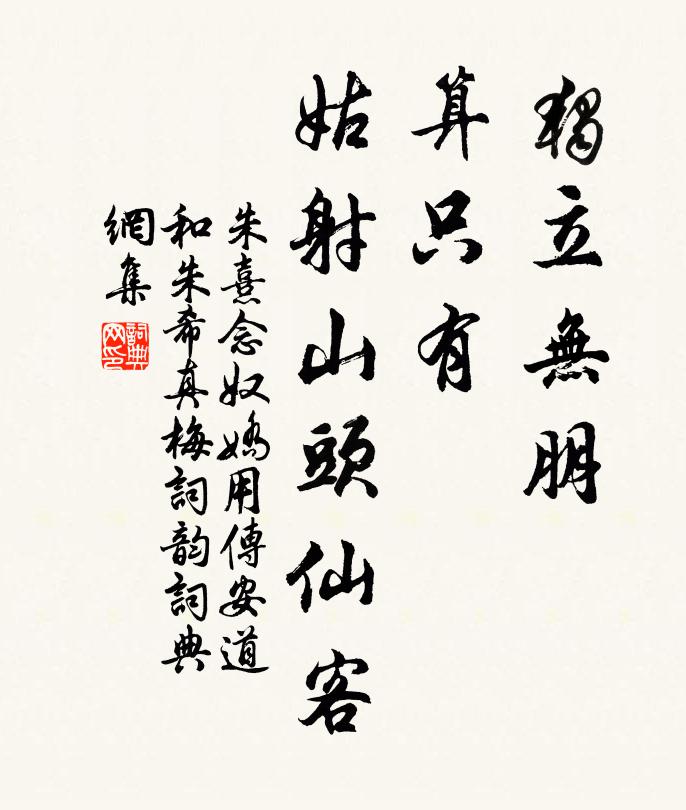 獨立無朋
算只有
姑射山頭仙客
朱熹念奴嬌用傅安道
和朱希真梅詞韵詞典
網集
詞典
网印